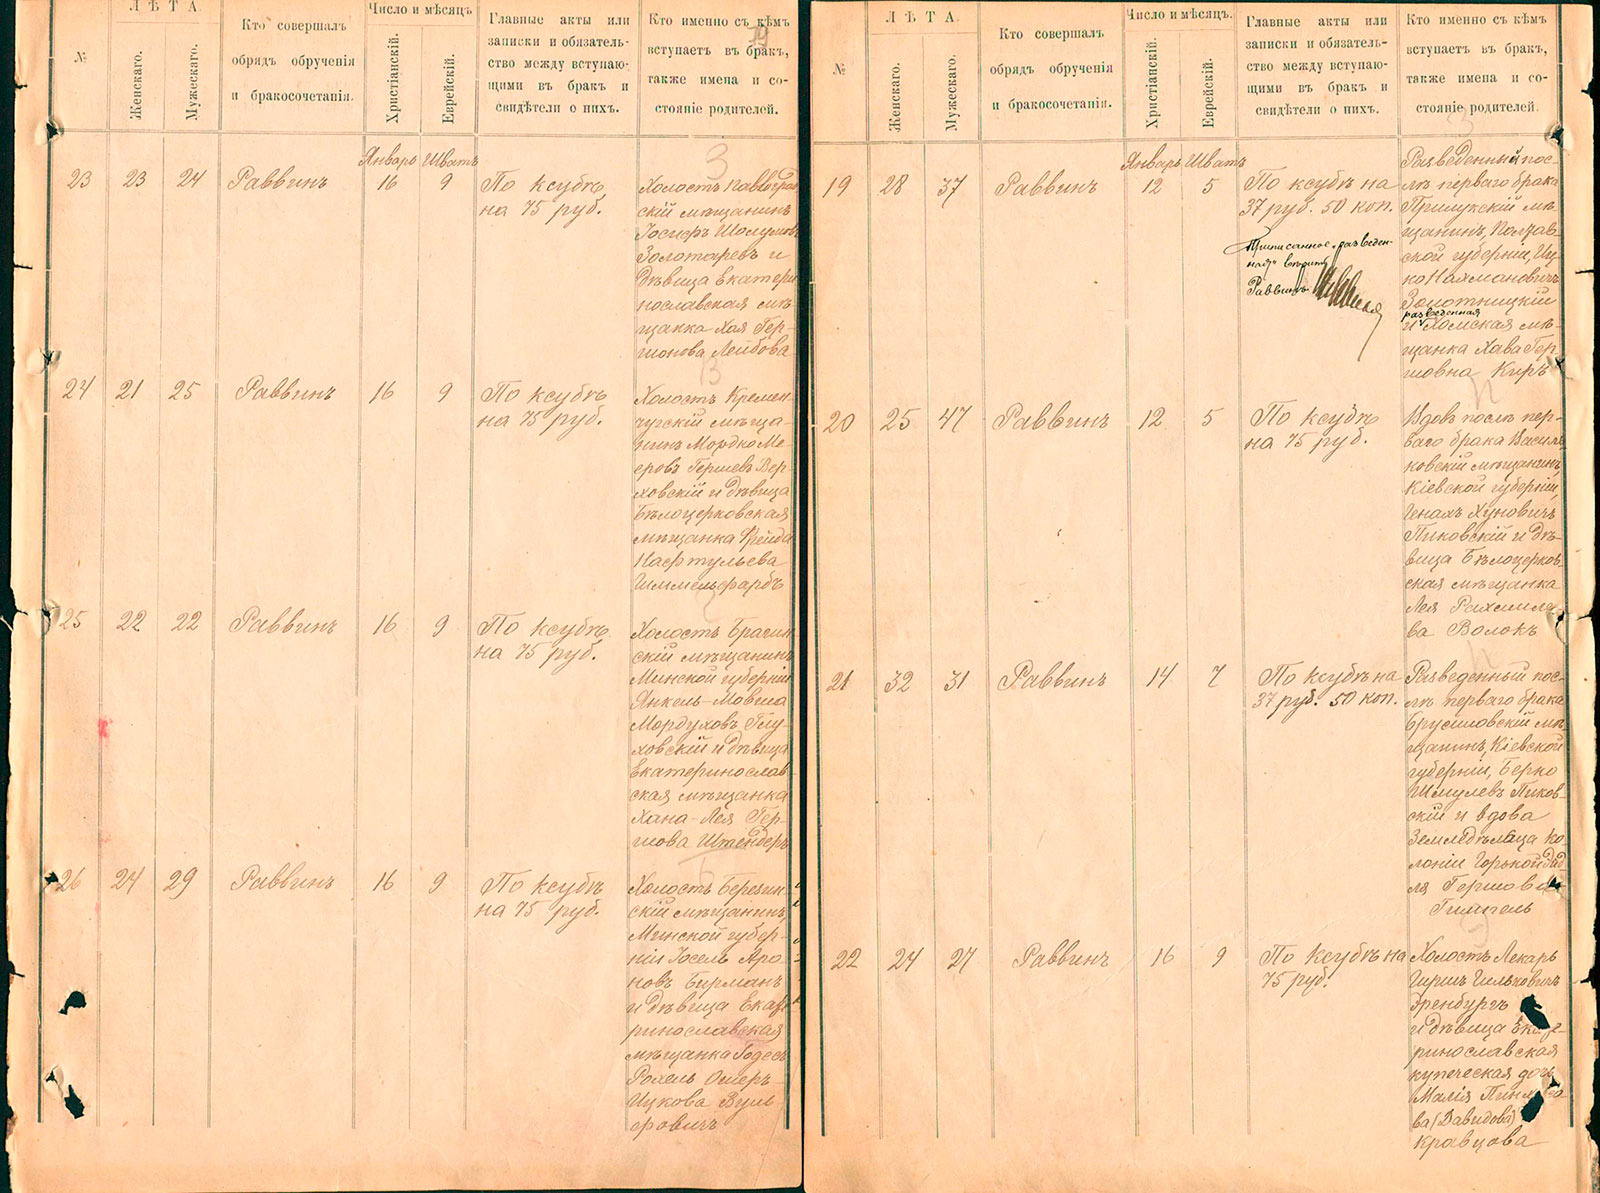 №
ЛѢТА.
Женскаго.
Мужескаго.
Кто совершалъ
обрядъ обрученія
и бракосочетанія.
Число и мѣсяцъ.
Христіанскій.
Еврейскій.
Главные акты или
записки и обязатель-
ство между вступаю-
щими въ бракъ и
свидѣтели о нихъ.
Кто именно съ кѣмъ
вступаетъ въ бракъ,
также имена и со-
стояніе родителей.
Январь Шватъ
23 23 24 Раввинъ 16 9
По ксубѣ
на 75 руб.
Холостъ
скій мѣщанинъ
Іосифъ
Золотаревъ и
дѣвица Екатери
нославская мѣ
щанка Хая Гер-
шонова Лейбова
24 21 25 Раввинъ 16 9
По ксубѣ
на 75 руб.
Холостъ Кремен-
чугскій мѣща-
нинъ Мордко Ме-
еровъ Гершевъ Вер-
ховскій и дѣвица
Бѣлоцерковская
мѣщанка Фрейда
Нафтульева
Гиммельфарбъ
25 22 22 Раввинъ 16 9
По ксубѣ
на 75 руб.
Холостъ Брагин
скій мѣщанинъ
Минской губерніи
Янкель-Мовша
Мордуховъ Глу-
ховскій и дѣвица
Екатеринослав-
ская мѣщанка
Хана-Лея Гер-
шова Штендеръ
26 24 29 Раввинъ 16 9
По ксубѣ
на 75 руб.
Холостъ Березин-
скій мѣщанинъ,
Минской губер-
ніи Іосель Аро-
новъ Бирманъ
и дѣвица Екате
ринославская
мѣщанка Годесъ
Рохель Ошеръ-
Ицкова Вуль
фовичъ
№
ЛѢТА.
Женскаго.
Мужескаго.
Кто совершалъ
обрядъ обрученія
и бракосочетанія.
Число и мѣсяцъ.
Христіанскій.
Еврейскій.
Главные акты или
записки и обязатель-
ство между вступаю-
щими въ бракъ и
свидѣтели о нихъ.
Кто именно съ кѣмъ
вступаетъ въ бракъ,
также имена и со-
стояніе родителей.
Январь Шватъ
19 28 37 Раввинъ 12 5
По ксубѣ на
37 руб. 50 коп.
Приписанное „разведен-
ная" вѣрно
Раввинъ
Разведенный пос-
лѣ перваго брака
Прилукскій мѣ-
щанинъ, Полтав-
ской губерніи, Иц-
ко Нахмановичъ
Золотницкій
разведенная
и Хомская мѣ-
щанка Хава Гер-
шовна Киръ
20 25 47 Раввинъ 12 5
По ксубѣ
на 75 руб.
Вдовъ послѣ пер-
ваго брака Василь
ковскій мѣщанинъ,
Кіевской губерніи,
Генахъ Хуновичъ
Пиковскій и дѣ-
вица Бѣлоцерков-
ская мѣщанка
Лея Рахмиле-
ва Волокъ
21 32 31 Раввинъ 14 7
По ксубѣ на
37 руб. 50 коп.
Разведенный пос-
лѣ перваго брака
Брусиловскій мѣ-
щанинъ, Кіевской
губерніи, Берко
Шмулевъ Пиков-
скій и вдова
Земледѣльца ко-
лоніи Горькой Адѣ
ля Гершова
Гимпель
22 24 27 Раввинъ 16 9
По ксубѣ на
75 руб.
Холостъ Лекарь
Гиршъ Гильковичъ
Эренбургъ
и дѣвица Екате-
ринославская
купеческая дочь
Малія
ва (Давидова)
Кравцова